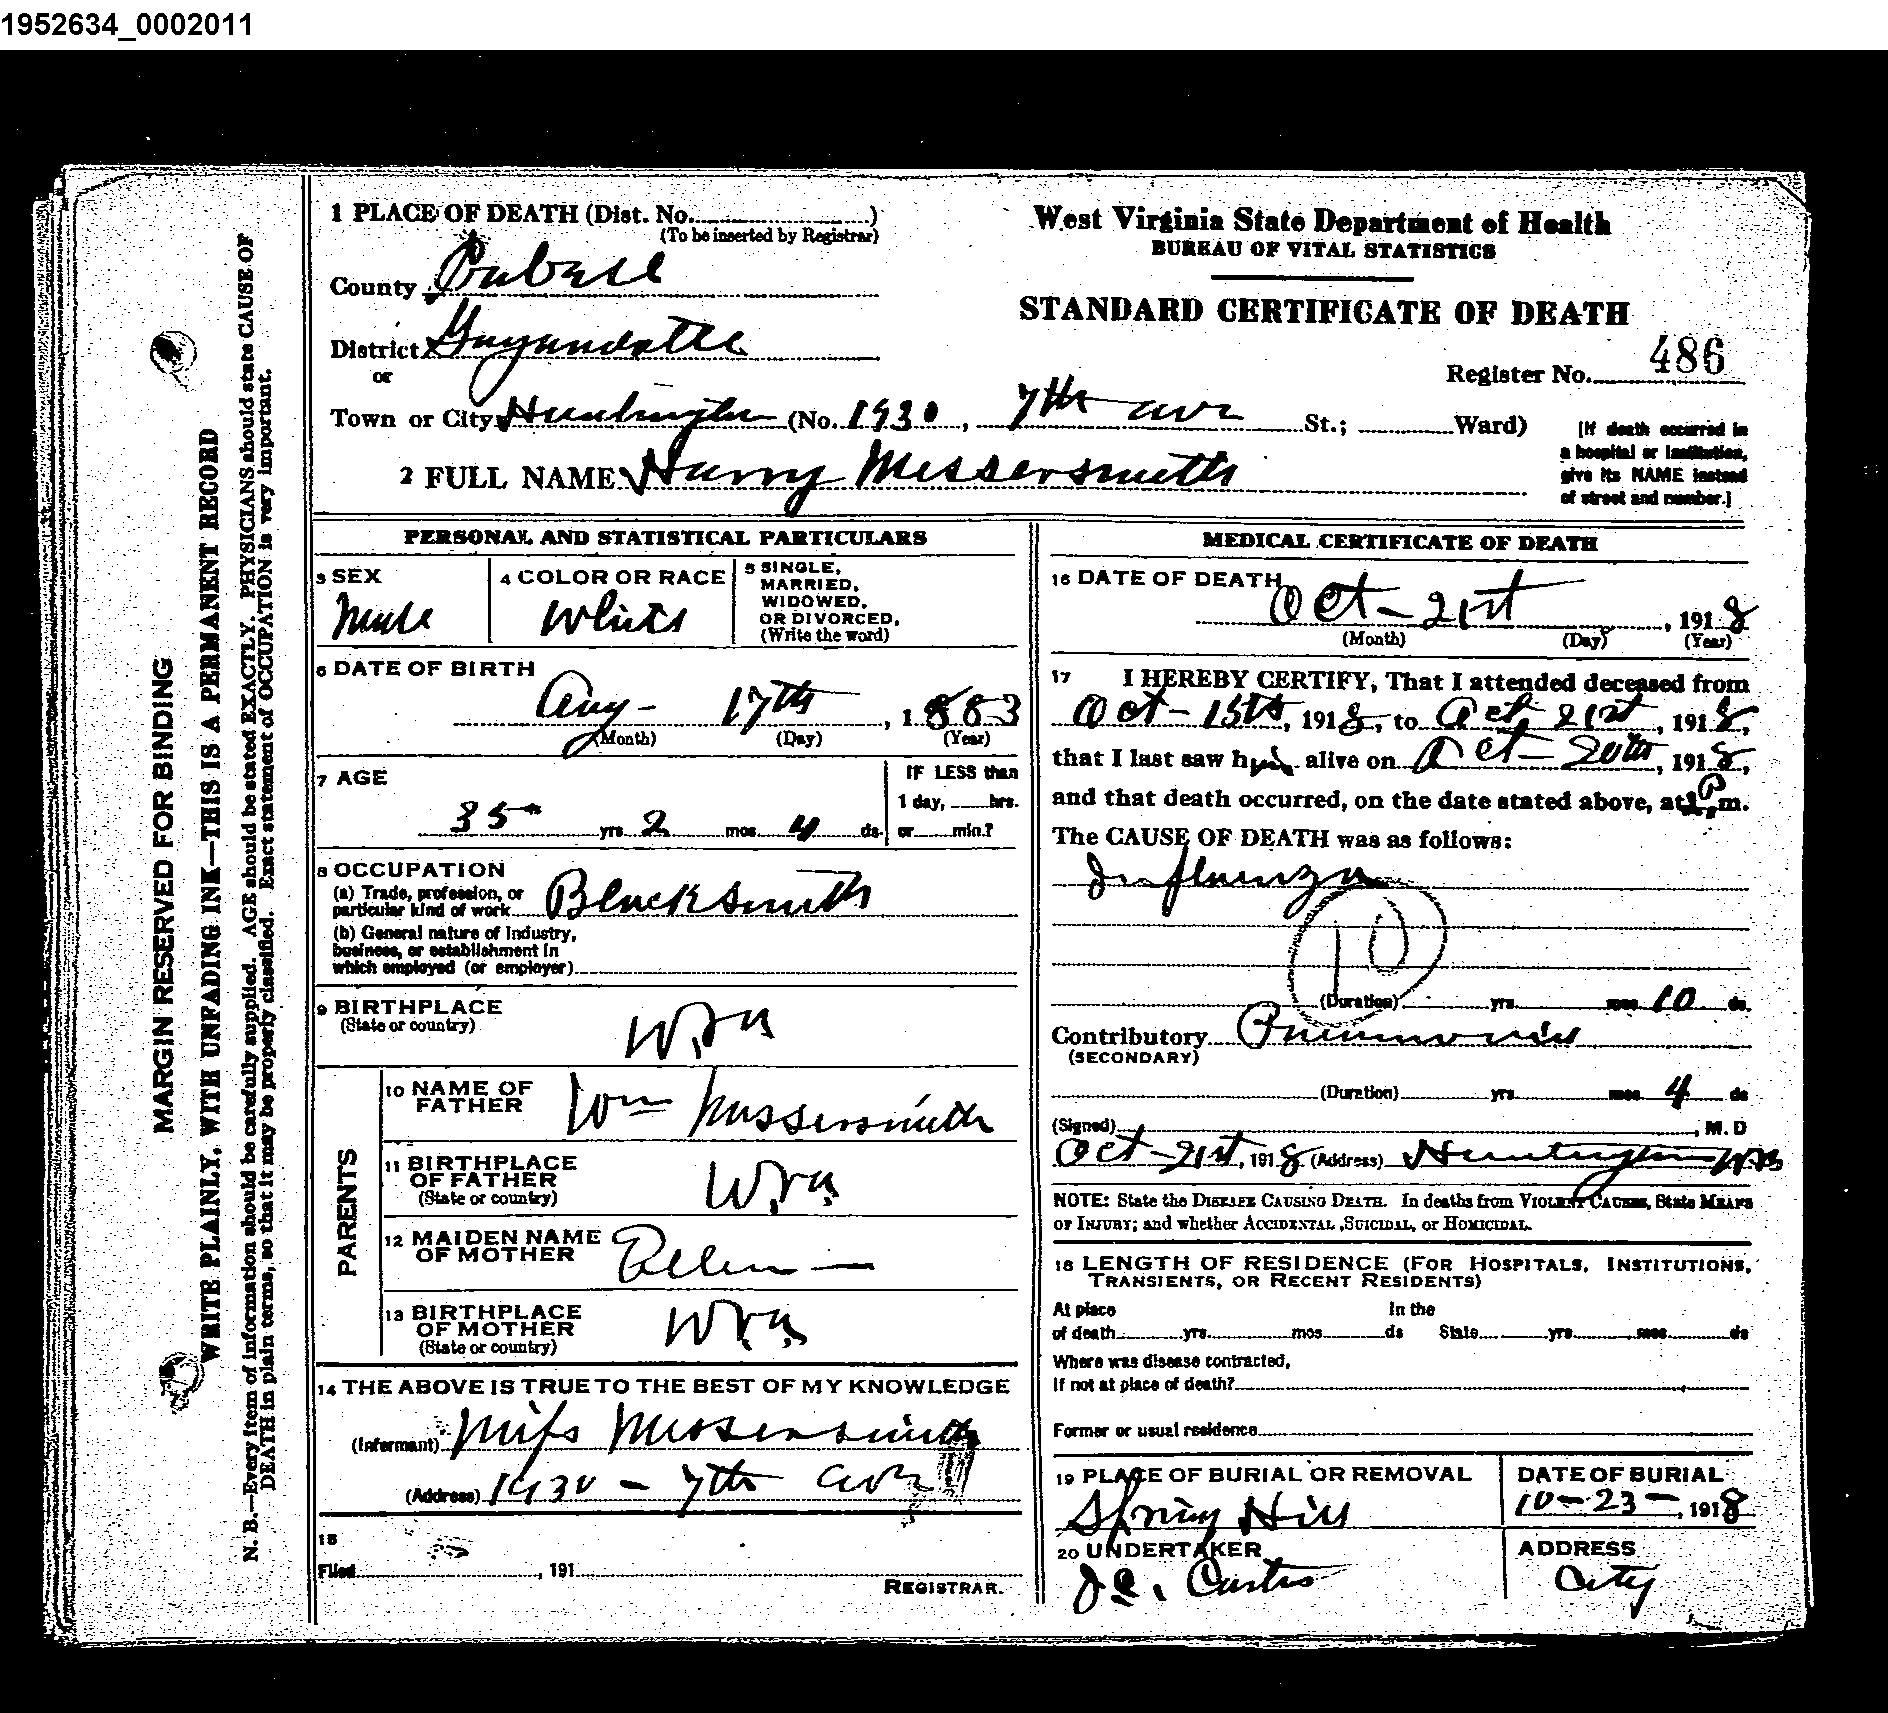 1952634_0002011
MARGIN RESERVED FOR BINDING
WRITE PLAINLY, WITH UNFADING INK—THIS IS A PERMANENT RECORD
N. B.—Every item of information should be carefully supplied. AGE should be stated EXACTLY. PHYSICIANS should state CAUSE OF
DEATH in plain terms, so that it may be properly classified. Exact statement of OCCUPATION is very important.
1 PLACE OF DEATH (Dist. No. )
(To be inserted by Registrar)
County Cabell
District Guyandotte
or
Town or City Huntington (No. 1930, 7th ave St.; Ward)
2 FULL NAME Harry Messersmith
West Virginia State Department of Health
BUREAU OF VITAL STATISTICS
STANDARD CERTIFICATE OF DEATH
Register No. 486
[If death occurred in
a hospital or institution,
give its NAME instead
of street and number.]
PERSONAL AND STATISTICAL PARTICULARS
3 SEX
Male
4 COLOR OR RACE
White
5 SINGLE,
MARRIED,
WIDOWED,
OR DIVORCED,
(Write the word)
6 DATE OF BIRTH
Aug- 17th, 1883
(Month) (Day) (Year)
7 AGE
35 yrs 2 mos 4 ds.
IF LESS than
1 day, hrs.
or min.?
8 OCCUPATION
(a) Trade, profession, or
particular kind of work Blacksmith
(b) General nature of Industry,
business, or establishment in
which employed (or employer)
9 BIRTHPLACE
(State or country)
W.Va
PARENTS
10 NAME OF
FATHER
Wm Messersmith
11 BIRTHPLACE
OF FATHER
(State or country)
W.Va
12 MAIDEN NAME
OF MOTHER
Ellen —
13 BIRTHPLACE
OF MOTHER
(State or country)
W.Va
14 THE ABOVE IS TRUE TO THE BEST OF MY KNOWLEDGE
(Informant) Miss Messersmith
(Address) 1930 - 7th ave
15
Filed , 191
REGISTRAR.
MEDICAL CERTIFICATE OF DEATH
16 DATE OF DEATH
Oct - 21st, 1918
(Month) (Day) (Year)
17 I HEREBY CERTIFY, That I attended deceased from
Oct - 15th, 1918, to Oct, 21st, 1918,
that I last saw him alive on Oct - 20th, 1918,
and that death occurred, on the date stated above, at P m.
The CAUSE OF DEATH was as follows:
Influenza
10
(Duration) yrs. mos 10 ds.
Contributory Pneumonia
(SECONDARY)
(Duration) yrs mos 4 ds
(Signed) , M. D
Oct - 21st, 1918 (Address) Huntington W.Va
NOTE: State the DISEASE CAUSING DEATH. In deaths from VIOLENT CAUSES, State MEANS
OF INJURY; and whether ACCIDENTAL ,SUICIDAL, or HOMICIDAL.
18 LENGTH OF RESIDENCE (FOR HOSPITALS, INSTITUTIONS,
TRANSIENTS, OR RECENT RESIDENTS)
At place In the
of death yrs. mos ds State yrs. mos ds
Where was disease contracted,
If not at place of death?
Former or usual residence
19 PLACE OF BURIAL OR REMOVAL
Spring Hill
DATE OF BURIAL
10-23-, 1918
20 UNDERTAKER
J.C. Curtis
ADDRESS
City